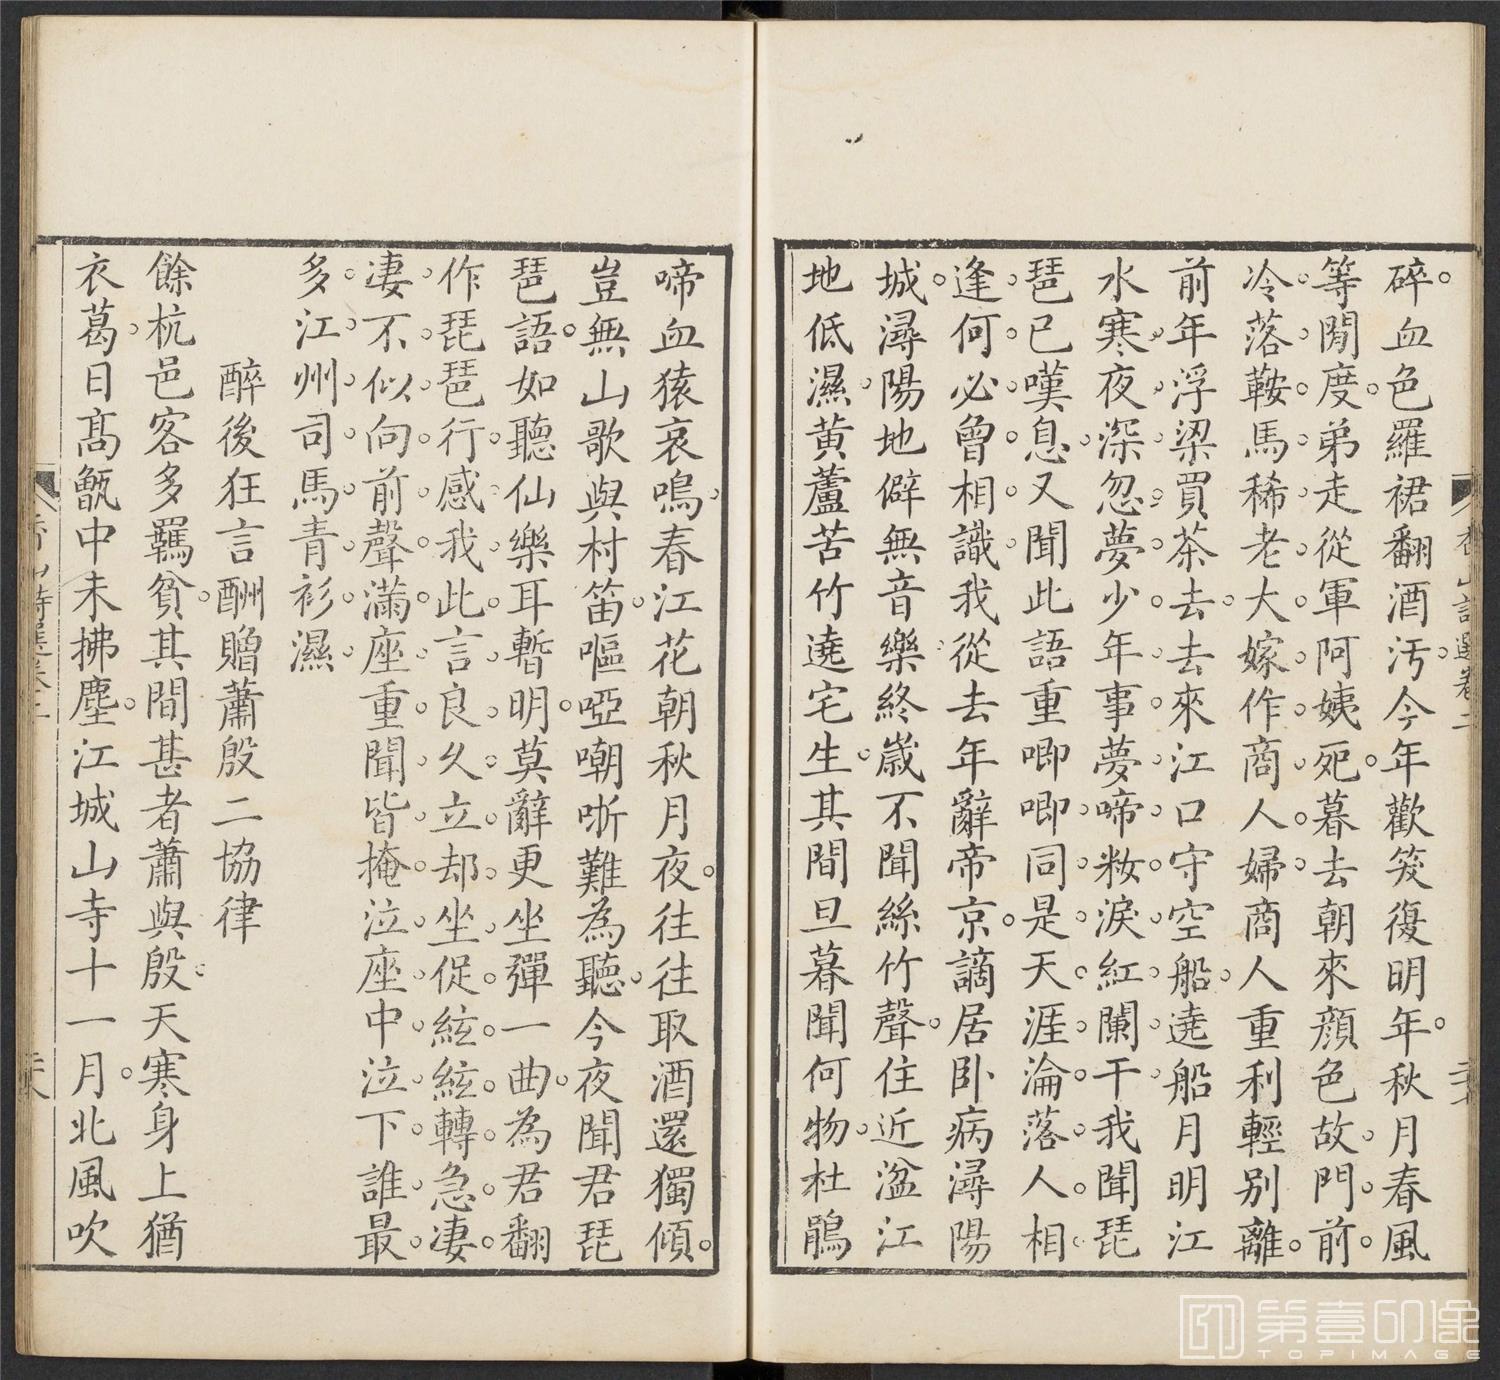 碎血色羅裙翻酒汚今年歡笑復明年秋月春風
等閒度弟走從軍阿姨死暮去朝來顔色故門前
冷落鞍馬稀老大嫁作商人婦商人重利輕別離
前年浮梁買茶去去來江口守空船遶船月明江
水寒夜深忽夢少年事夢啼粧淚紅闌干我聞琵
琶已嘆息又聞此語重唧唧同是天涯淪落人相
逢何必曾相識我從去年辭帝京謫居卧病潯陽
城潯陽地僻無音樂終歲不聞絲竹聲住近湓江
地低濕黃蘆苦竹遶宅生其間旦暮聞何物杜鵑
香山詩選卷二
啼血猿哀鳴春江花朝秋月夜往往取酒還獨傾
豈無山歌與村笛嘔啞嘲哳難為聽今夜聞君琵
琶語如聽仙樂耳暫明莫辭更坐彈一曲為君翻
作琵琶行感我此言良久立却坐促絃絃轉急凄
凄不似向前聲滿座重聞皆掩泣座中泣下誰最
多江州司馬青衫濕
醉後狂言酬贈蕭殷二協律
餘杭邑客多羈貧其間甚者蕭與殷天寒身上猶
衣葛日高甑中未拂塵江城山寺十一月北風吹
香山詩選卷二
第壹印像
TOPIMAGE